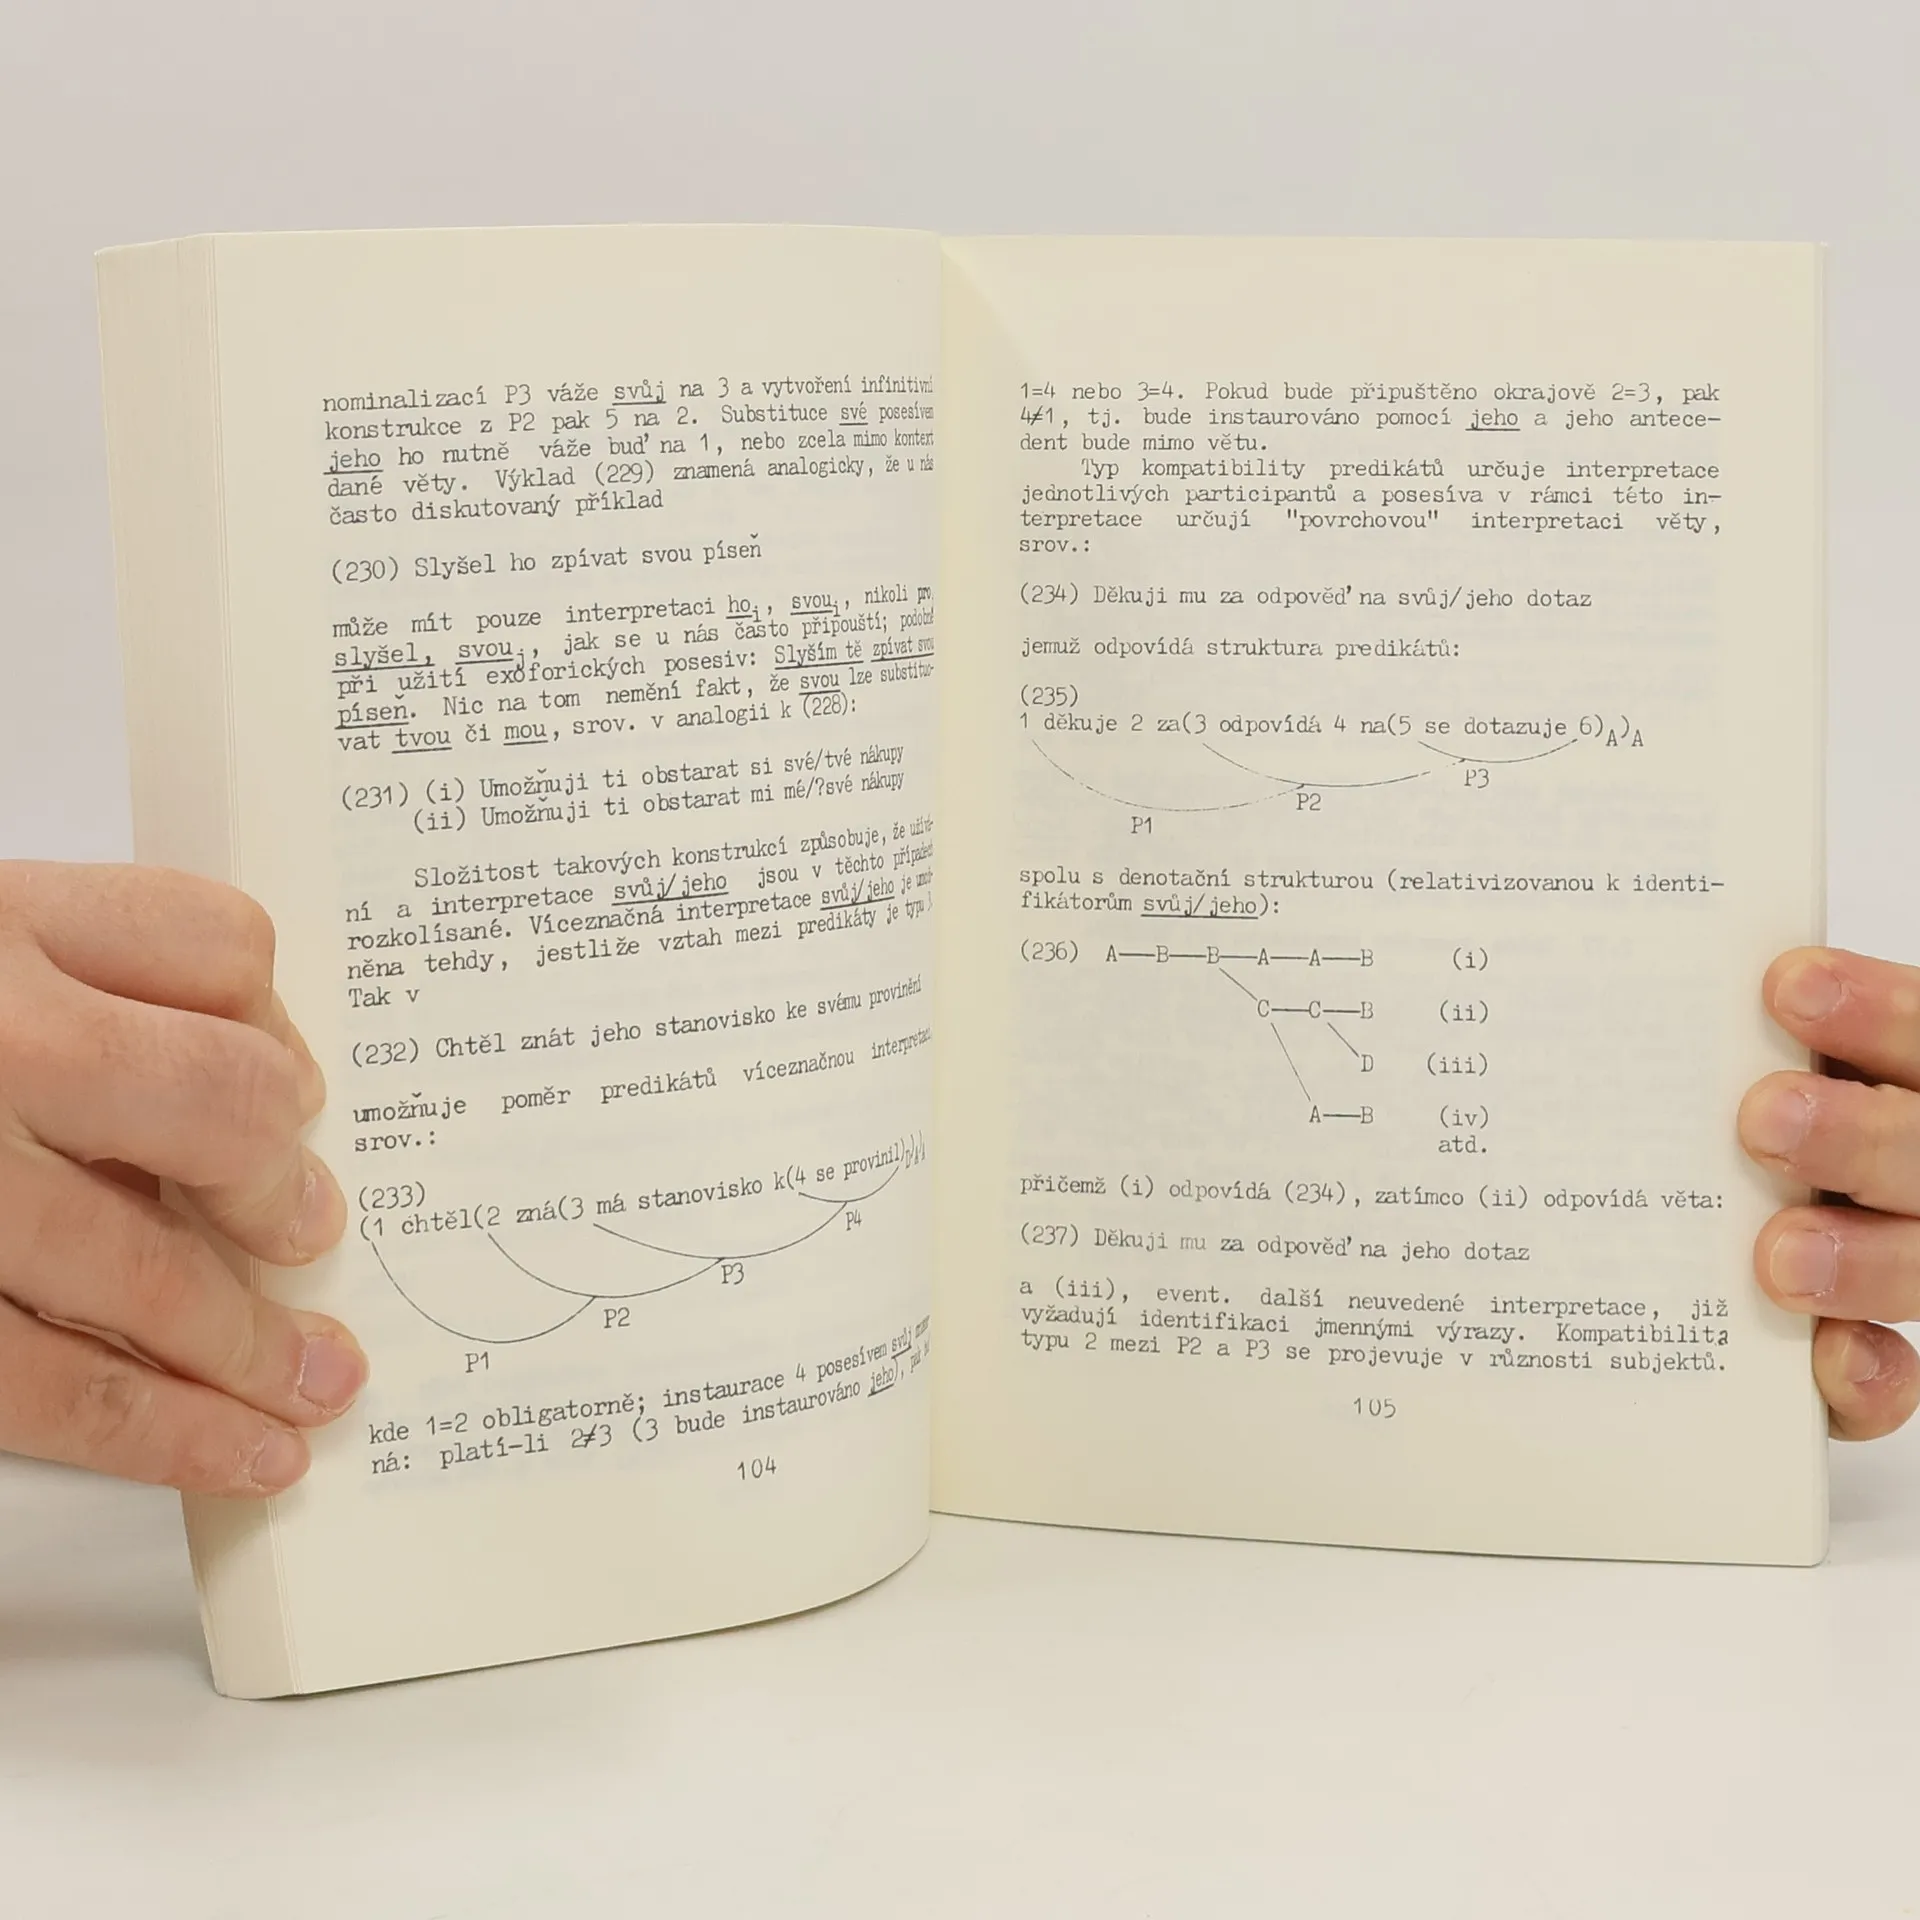 nominalizací P3 váže svůj na 3 a vytvoření infinitivní
konstrukce z P2 pak 5 na 2. Substituce své posesívem
jeho ho nutně váže buď na 1, nebo zcela mimo kontext
dané věty. Výklad (229) znamená analogicky, že u nás
často diskutovaný příklad
(230) Slyšel ho zpívat svou píseň
může mít pouze interpretaci ho_i, svou_i, nikoli pro
slyšel, svou_j, jak se u nás často připouští; podobně
při užití exoforických posesiv: Slyším tě zpívat svou
píseň. Nic na tom nemění fakt, že svou lze substituo-
vat tvou či mou, srov. v analogii k (228):
(231) (i) Umožňuji ti obstarat si své/tvé nákupy
(ii) Umožňuji ti obstarat mi mé/?své nákupy
Složitost takových konstrukcí způsobuje, že užívá-
ní a interpretace svůj/jeho jsou v těchto případech
rozkolísané. Víceznačná interpretace svůj/jeho je umož-
něna tehdy, jestliže vztah mezi predikáty je typu 3.
Tak v
(232) Chtěl znát jeho stanovisko ke svému provinění
umožňuje poměr predikátů víceznačnou interpretaci
srov.:
(233)
(1 chtěl(2 zná(3 má stanovisko k(4 se provinil)_D)_A)_A
P4
P3
P2
P1
kde 1=2 obligatorně; instaurace 4 posesívem svůj
ná: platí-li 2≠3 (3 bude instaurováno jeho), pak
104
1=4 nebo 3=4. Pokud bude připuštěno okrajově 2=3, pak
4≠1, tj. bude instaurováno pomocí jeho a jeho antece-
dent bude mimo větu.
Typ kompatibility predikátů určuje interpretace
jednotlivých participantů a posesíva v rámci této in-
terpretace určují "povrchovou" interpretaci věty,
srov.:
(234) Děkuji mu za odpověď na svůj/jeho dotaz
jemuž odpovídá struktura predikátů:
(235)
1 děkuje 2 za(3 odpovídá 4 na(5 se dotazuje 6)_A)_A
P3
P2
P1
spolu s denotační strukturou (relativizovanou k identi-
fikátorům svůj/jeho):
(236) A—B—B—A—A—B (i)
C—C—B (ii)
D (iii)
A—B (iv)
atd.
přičemž (i) odpovídá (234), zatímco (ii) odpovídá věta:
(237) Děkuji mu za odpověď na jeho dotaz
a (iii), event. další neuvedené interpretace, již
vyžadují identifikaci jmennými výrazy. Kompatibilita
typu 2 mezi P2 a P3 se projevuje v různosti subjektů.
105